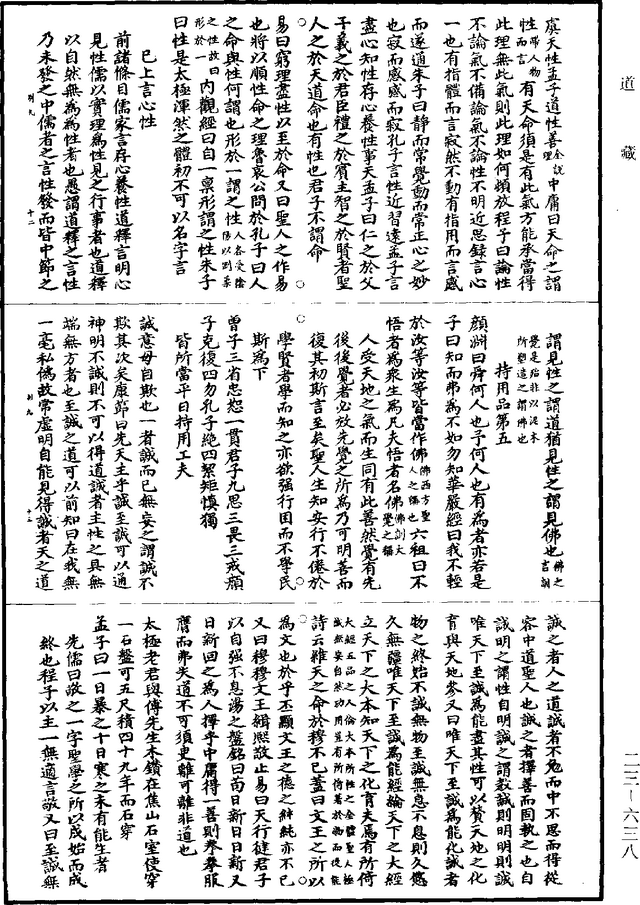 道藏
虞天性孟子道性善全說理中庸曰天命之謂
性帶人物而言有天命須是有此氣方能承當得
此理無此氣則此理如何頓放程子曰論性
不論氣不備論氣不論性不明近思錄言心
一也有指體而言寂然不動有指用而言感
而遂通朱子曰靜而常覺動而常正心之妙
也寂而感感而寂孔子言性近習遠孟子言
盡心知性存心養性事天孟子曰仁之於父
子義之於君臣禮之於賓主智之於賢者聖
人之於天道命也有性也君子不謂命
易曰窮理盡性以至於命又曰聖人之作易
也將以順性命之理魯哀公問於孔子曰人
之命與性何謂也形於一謂之性人各受陰陽以剛柔
之性故曰形於一內觀經曰自一稟形謂之性朱子
曰性是太極渾然之體初不可以名字言
已上言心性
前諸條目儒家言存心養性道釋言明心
見性儒以實理為性見之行事者也道釋
以自然無為為性者也愚謂道釋之言性
乃未發之中儒者之言性發而皆中節之
謂見性之謂道猶見性之謂見佛也佛之言詶
覺是殆非以泥木所塑造之謂佛也
持用品第五
顏淵曰舜何人也予何人也有為者亦若是
子曰知而弗為不如勿知華嚴經曰我不輕
於汝等汝等皆當作佛佛西方聖人之稱也六祖曰不
悟者為衆生為凡夫悟者名佛佛訓大覺之稱
人受天地之氣而生同有此善然覺有先
後後覺者必放先覺之所為乃可明善而
復其初斯言至矣聖人生知安行不倦於
學賢者學而知之亦欲强行困而不學民
斯為下
曾子三省忠恕一貫君子九思三畏三戒顏
子克復四勿孔子絕四絜矩慎獨
皆所當平日持用工夫
誠意毋自欺也一者誠而已無妄之謂誠不
欺其次矣康節曰先天主乎誠至誠可以通
神明不誠則不可以得道誠者主性之具無
端無方者也至誠之道可以前知曰在我無
一毫私僞故常虛明自能見得誠者天之道
誠之者人之道誠者不勉而中不思而得從
容中道聖人也誠之者擇善而固執之也自
誠明之謂性自明誠之謂教誠則明明則誠
唯天下至誠為能盡其性可以贊天地之化
育與天地參又曰唯天下至誠為能化誠者
物之終始不誠無物至誠無息不息則久悠
久無疆唯天下至誠為能經綸天下之大經
立天下之大本知天下之化育夫焉有所倚
大經五品之人倫大本所性之全體聖人極誠無妄自然功用豈有所倚著於物而後能
詩云維天之命於穆不已蓋曰文王之所以
為文也於乎丕顯文王之德之純純亦不已
又曰穆穆文王緝熙敬止易曰天行健君子
以自强不息湯之盤銘曰苟日新日日新又
日新回之為人擇乎中庸得一善則拳拳服
膺而弗失道不可須臾離可離非道也
太極老君與傅先生木鑽在焦山石室使穿
一石盤可五尺積四十九年而石穿
孟子曰一日暴之十日寒之未有能生者
先儒曰敬之一字聖學之所以成始而成
終也程子以主一無適言敬又曰至誠無
二三—六三八